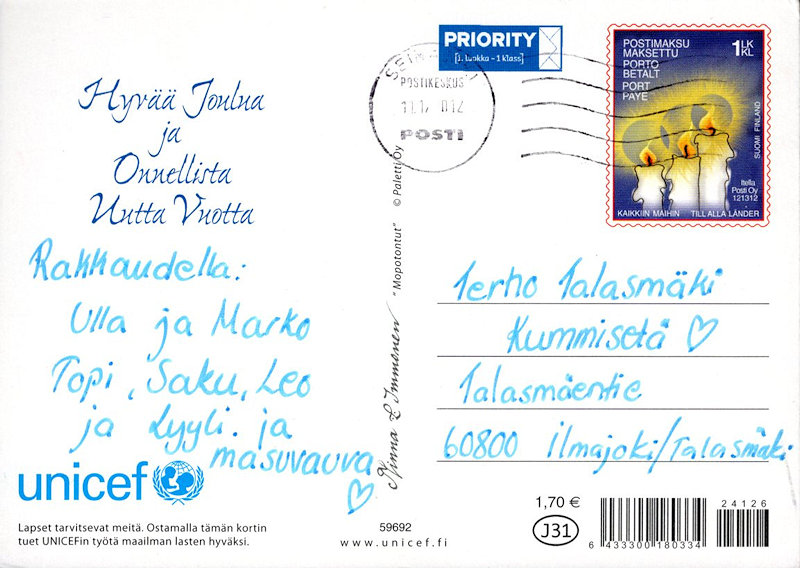 Hyvää Joulua
ja
Onnellista
Uutta Vuotta
Rakkaudella:
Ulla ja Marko
Topi, Saku, Leo
ja Lyyli. ja
masuvauva
♡
unicef
Lapset tarvitsevat meitä. Ostamalla tämän kortin
tuet UNICEFin työtä maailman lasten hyväksi.
Ninna E Immonen "Mopotontut" © Paletti Oy
59692
www.unicef.fi
PRIORITY
[1. luokka - 1 klass]
POSTIKESKUS
POSTI
POSTIMAKSU
MAKSETTU
PORTO
BETALT
PORT
PAYE
1 LK
KL
SUOMI FINLAND
Itella
Posti Oy
121312
KAIKKIIN MAIHIN TILL ALLA LÄNDER
Terho Talasmäki
Kummisetä ♡
Talasmäentie
60800 ilmajoki/Talasmäki
1,70 €
J31
6 433300 180334
24126